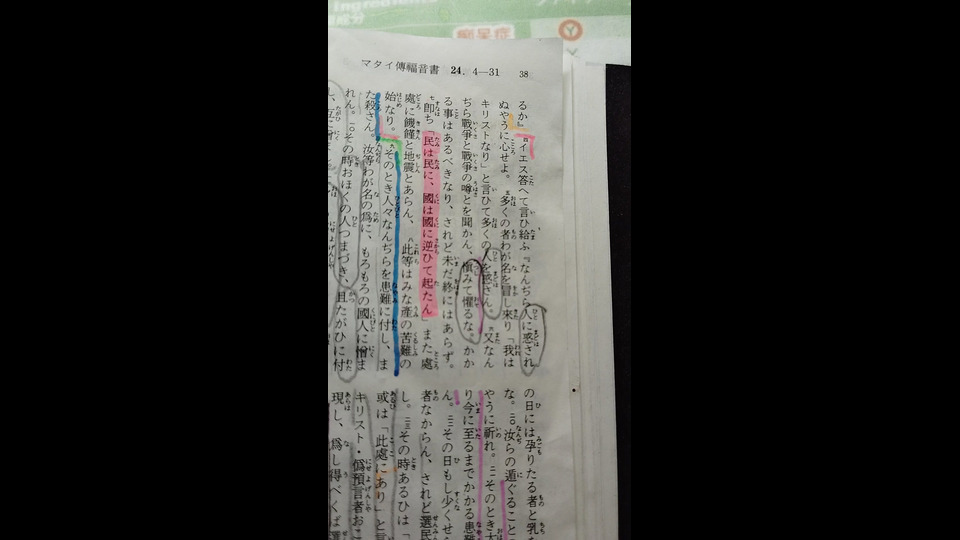 ingredients
成分
マタイ傳福音書 24. 4―31 38
るか』 四イエス答へて言ひ給ふ『なんぢら人に惑され
ぬやうに心せよ。 五多くの者わが名を冒し來り「我は
キリストなり」と言ひて多くの人を惑さん。 六又なん
ぢら戰爭と戰爭の噂とを聞かん、愼みて懼るな。かか
る事はあるべきなり、されど未だ終にはあらず。
七即ち「民は民に、國は國に逆ひて起たん」また處
處に饑饉と地震とあらん、 八此等はみな產の苦難の
始なり。 九そのとき人々なんぢらを患難に付し、ま
た殺さん。汝等わが名の爲に、もろもろの國人に憎ま
れん。 一〇その時おほくの人つまづき、且たがひに付
の日には孕りたる者と乳
な。 二〇汝らの遁ぐること
やうに祈れ。 二一そのとき大
り今に至るまでかかる患難
ん。 二二その日もし少くせ
者なからん、されど選民
し。 二三その時あるひは「
或は「此處にあり」と言
キリスト・僞預言者おこ
現し、爲し得べくば